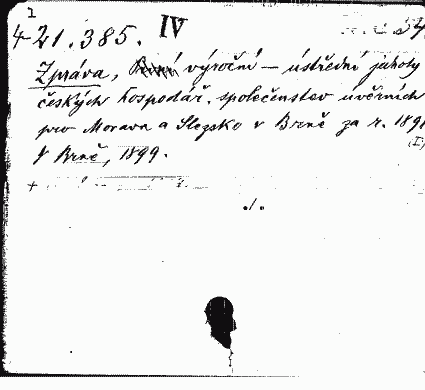 1
4-21.385. IV 54
Zpráva, výroční — ústřední jednoty
českých hospodář. společenstev úvěrních
pro Moravu a Slezsko v Brně za r. 189
V Brně, 1899.
(I)
+
./.